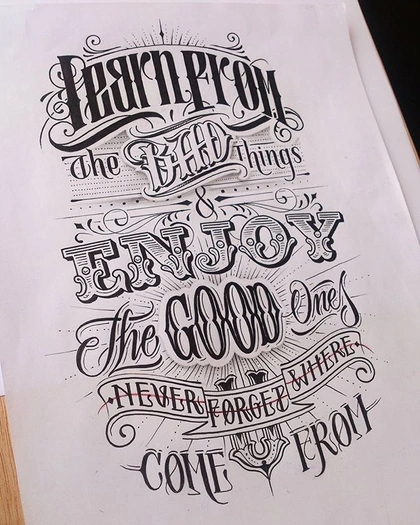 Learn From
The BAD things
&
ENJOY
The GOOD Ones
NEVER FORGET WHERE
U
COME FROM